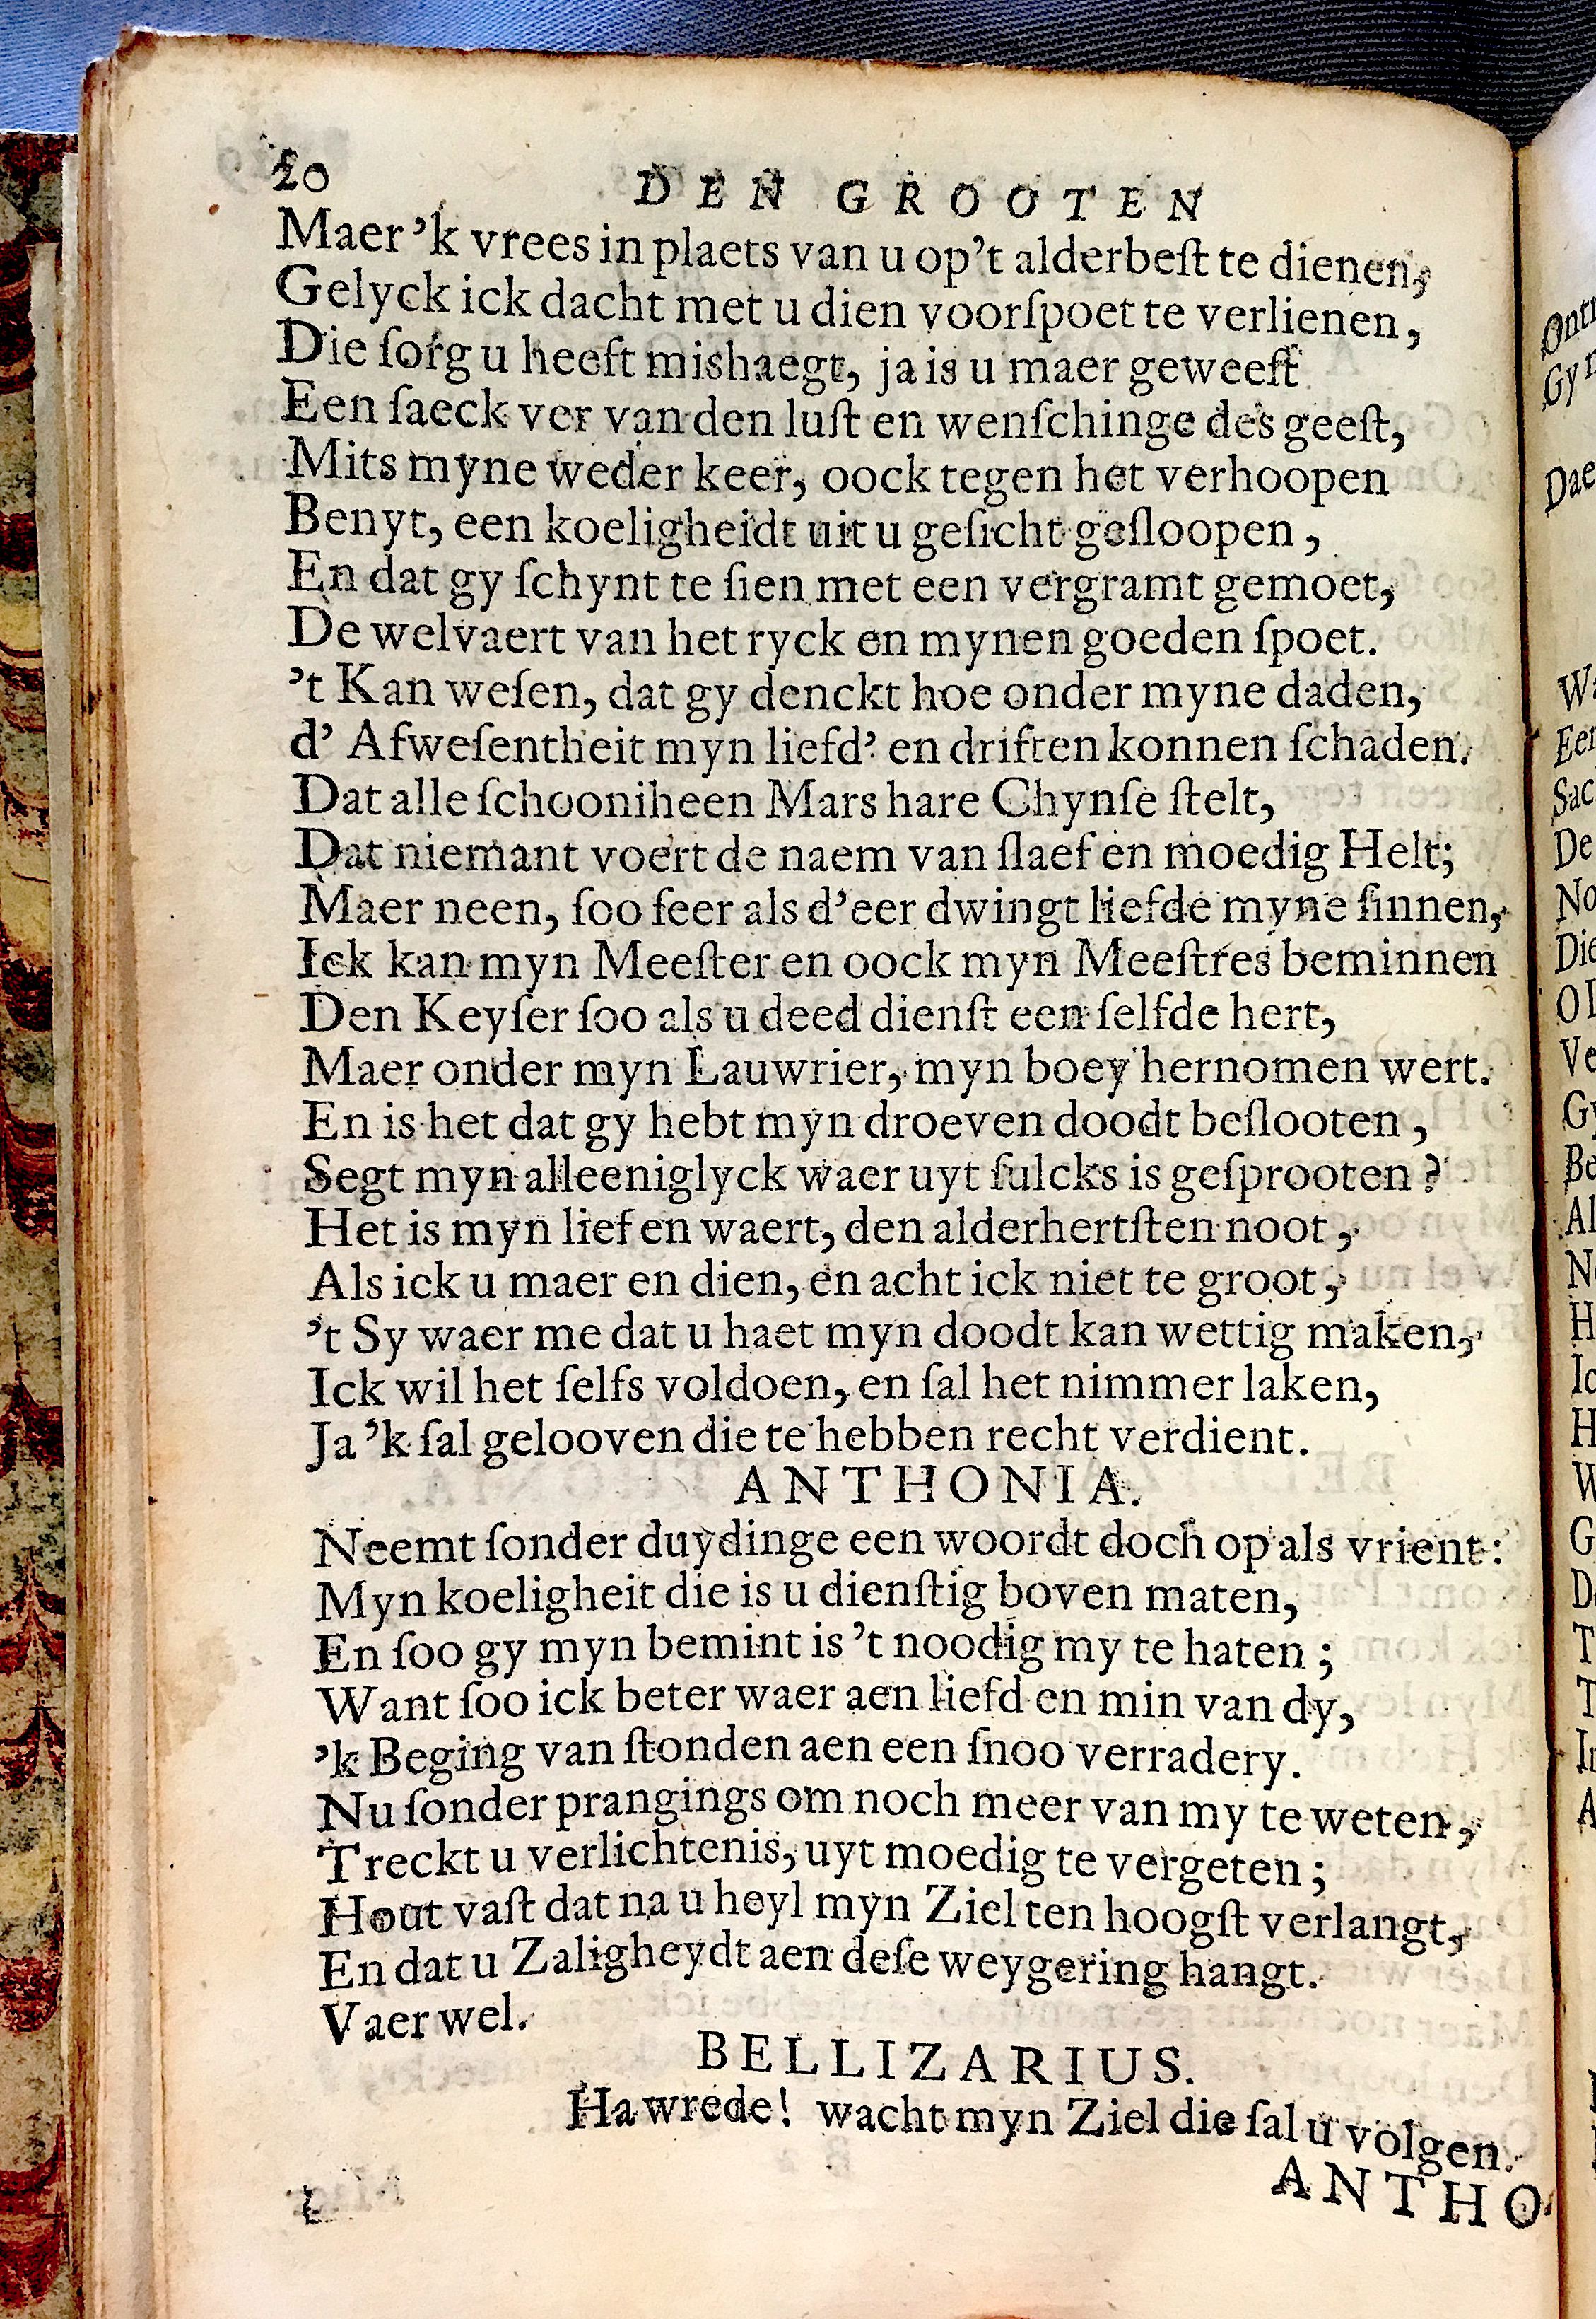 20
DEN GROOTEN
Maer ’k vrees in plaets van u op’t alderbeſt te dienen,
Gelyck ick dacht met u dien voorſpoet te verlienen,
Die ſorg u heeft mishaegt, ja is u maer geweeſt
Een ſaeck ver van den luſt en wenſchinge des geeſt,
Mits myne weder keer, oock tegen het verhoopen
Benyt, een koeligheidt uit u geſicht geſloopen,
En dat gy ſchynt te ſien met een vergramt gemoet,
De welvaert van het ryck en mynen goeden ſpoet.
’t Kan weſen, dat gy denckt hoe onder myne daden,
d’ Afweſentheit myn liefd’ en driften konnen ſchaden.
Dat alle ſchooniheen Mars hare Chynſe ſtelt,
Dat niemant voert de naem van ſlaef en moedig Helt;
Maer neen, ſoo ſeer als d’eer dwingt liefde myne ſinnen,
Ick kan myn Meeſter en oock myn Meeſtres beminnen
Den Keyſer ſoo als u deed dienſt een ſelfde hert,
Maer onder myn Lauwrier, myn boey hernomen wert.
En is het dat gy hebt myn droeven doodt beſlooten,
Segt myn alleeniglyck waer uyt ſulcks is geſprooten?
Het is myn lief en waert, den alderhertſten noot,
Als ick u maer en dien, en acht ick niet te groot,
’t Sy waer me dat u haet myn doodt kan wettig maken,
Ick wil het ſelfs voldoen, en ſal het nimmer laken,
Ja ’k ſal gelooven die te hebben recht verdient.
ANTHONIA.
Neemt ſonder duydinge een woordt doch op als vrient:
Myn koeligheit die is u dienſtig boven maten,
En ſoo gy myn bemint is ’t noodig my te haten;
Want ſoo ick beter waer aen liefd en min van dy,
’k Beging van ſtonden aen een ſnoo verradery.
Nu ſonder prangings om noch meer van my te weten,
Treckt u verlichtenis, uyt moedig te vergeten;
Hout vaſt dat na u heyl myn Ziel ten hoogſt verlangt,
En dat u Zaligheydt aen deſe weygering hangt.
Vaer wel.
BELLIZARIUS.
Ha wrede! wacht myn Ziel die ſal u volgen.
ANTHO-